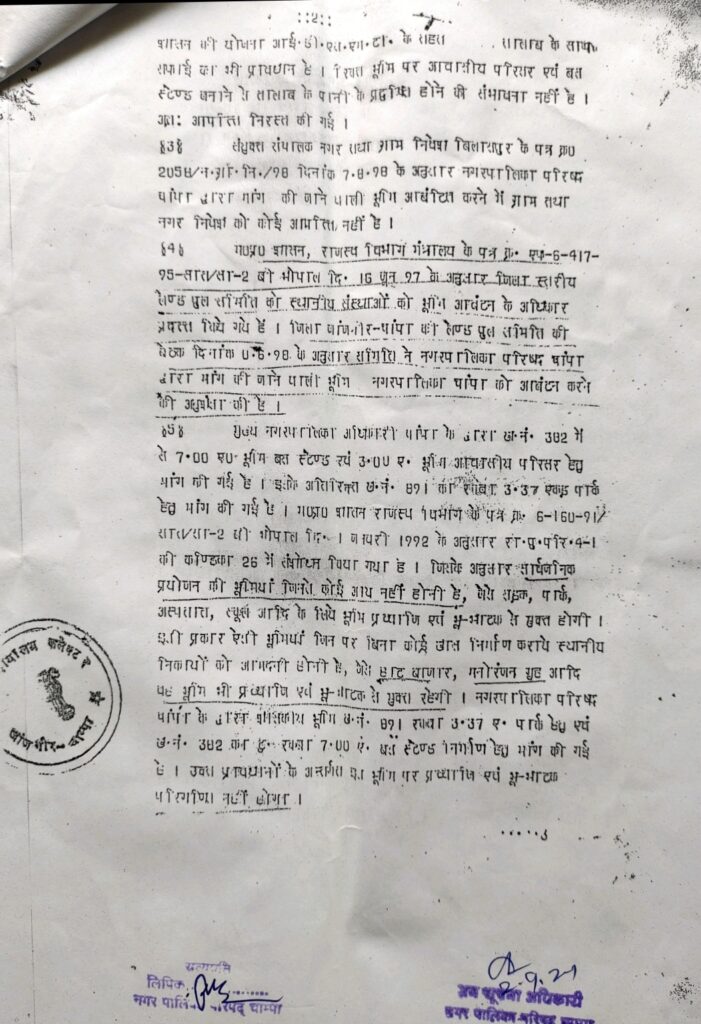 ::2::
शासन की योजना आई.डी.एस.एम.टी. के तहत तालाब के साथ
सफाई का भी प्रावधान है । रिक्त भूमि पर आवासीय परिसर एवं बस
स्टेण्ड बनाने से तालाब के पानी के प्रदूषित होने की संभावना नहीं है ।
अतः आपत्ति निरस्त की गई ।
§3§ संयुक्त संचालक नगर तथा ग्राम निवेश बिलासपुर के पत्र क्र0
2058/न.ग्रा.नि./98 दिनांक 7.8.98 के अनुसार नगरपालिका परिषद
चांपा द्वारा मांग की जाने वाली भूमि आबंटित करने में ग्राम तथा
नगर निवेश को कोई आपत्ति नहीं है ।
§4§ म0प्र0 शासन, राजस्व विभाग मंत्रालय के पत्र क्र. एफ-6-417-
95-सात/सा-2 बी भोपाल दि. 16 जून 97 के अनुसार जिला स्तरीय
लेण्ड पुल समिति को स्थानीय संस्थाओं को भूमि आबंटन के अधिकार
प्रदत्त किये गये हैं । जिला जांजगीर-चांपा की लेण्ड पुल समिति की
बैठक दिनांक .98 के अनुसार समिति ने नगरपालिका परिषद चांपा
द्वारा मांग की जाने वाली भूमि नगरपालिका चांपा को आबंटन करने
की अनुशंसा की है ।
§5§ मुख्य नगरपालिका अधिकारी चांपा के द्वारा ख.नं. 382 में
से 7.00 ए0 भूमि बस स्टेण्ड एवं 3.00 ए. भूमि आवासीय परिसर हेतु
मांग की गई है । इसके अतिरिक्त ख.नं. 891 का रकबा 3.37 एकड़ पार्क
हेतु मांग की गई है । म0प्र0 शासन राजस्व विभाग के पत्र क्र. 6-160-91/
सात/सा-2 बी भोपाल दि. । जनवरी 1992 के अनुसार रा.पु.परि.4-1
की कण्डिका 26 में संशोधन किया गया है । जिसके अनुसार सार्वजनिक
प्रयोजन की भूमियां जिनसे कोई आय नहीं होनी है, जैसे सड़क, पार्क,
अस्पताल, स्कूल आदि के लिये भूमि प्रव्याजि एवं भू-भाटक से मुक्त होगी ।
इसी प्रकार ऐसी भूमियां जिन पर बिना कोई खास निर्माण कराये स्थानीय
निकायों को आमदनी होनी है, जैसे हाट बाजार, मनोरंजन गृह आदि
वह भूमि भी प्रव्याजि एवं भू-भाटक से मुक्त रहेगी । नगरपालिका परिषद
चांपा के द्वारा शासकीय भूमि ख.नं. 891 रकबा 3.37 ए. पार्क हेतु एवं
ख.नं. 382 का टु. रकबा 7.00 ए. बस स्टेण्ड निर्माण हेतु मांग की गई
है । उक्त प्रावधानों के अन्तर्गत भूमि पर प्रव्याजि एवं भू-भाटक
परिगणित नहीं होगा ।
.....3
न्यायालय कलेक्टर
जांजगीर-चाम्पा
सत्यप्रति
लिपिक
नगर पालिका परिषद चाम्पा
2.9.21
जन सूचना अधिकारी
नगर पालिका परिषद चाम्पा